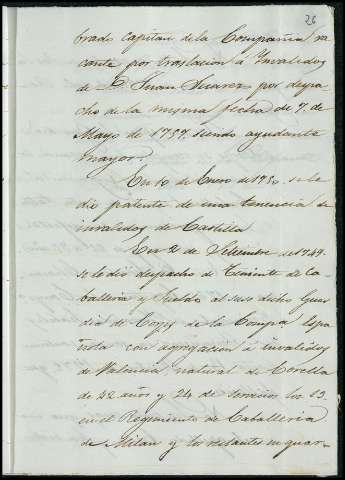 26
brado capitan de la Compañia va
cante por traslacion a Invalidos
de D. Juan Suarez por despa-
cho de la misma fecha de 7. de
Mayo de 1757. siendo ayudante
mayor.
En 10 de Enero de 1750. se le
dio patente de una tenencia de
invalidos de Castilla
En 2 de Setiembre de 1749.
se le dió despacho de Teniente de Ca-
balleria y Sueldo al suso dicho Guar
dia de Corps de la Compa Espa
ñola con agregacion a invalidos
de Valencia natural de Corella
de 42 años y 24 de servicios los 13.
en el Regimiento de Caballeria
de Milan y los restantes en guar-